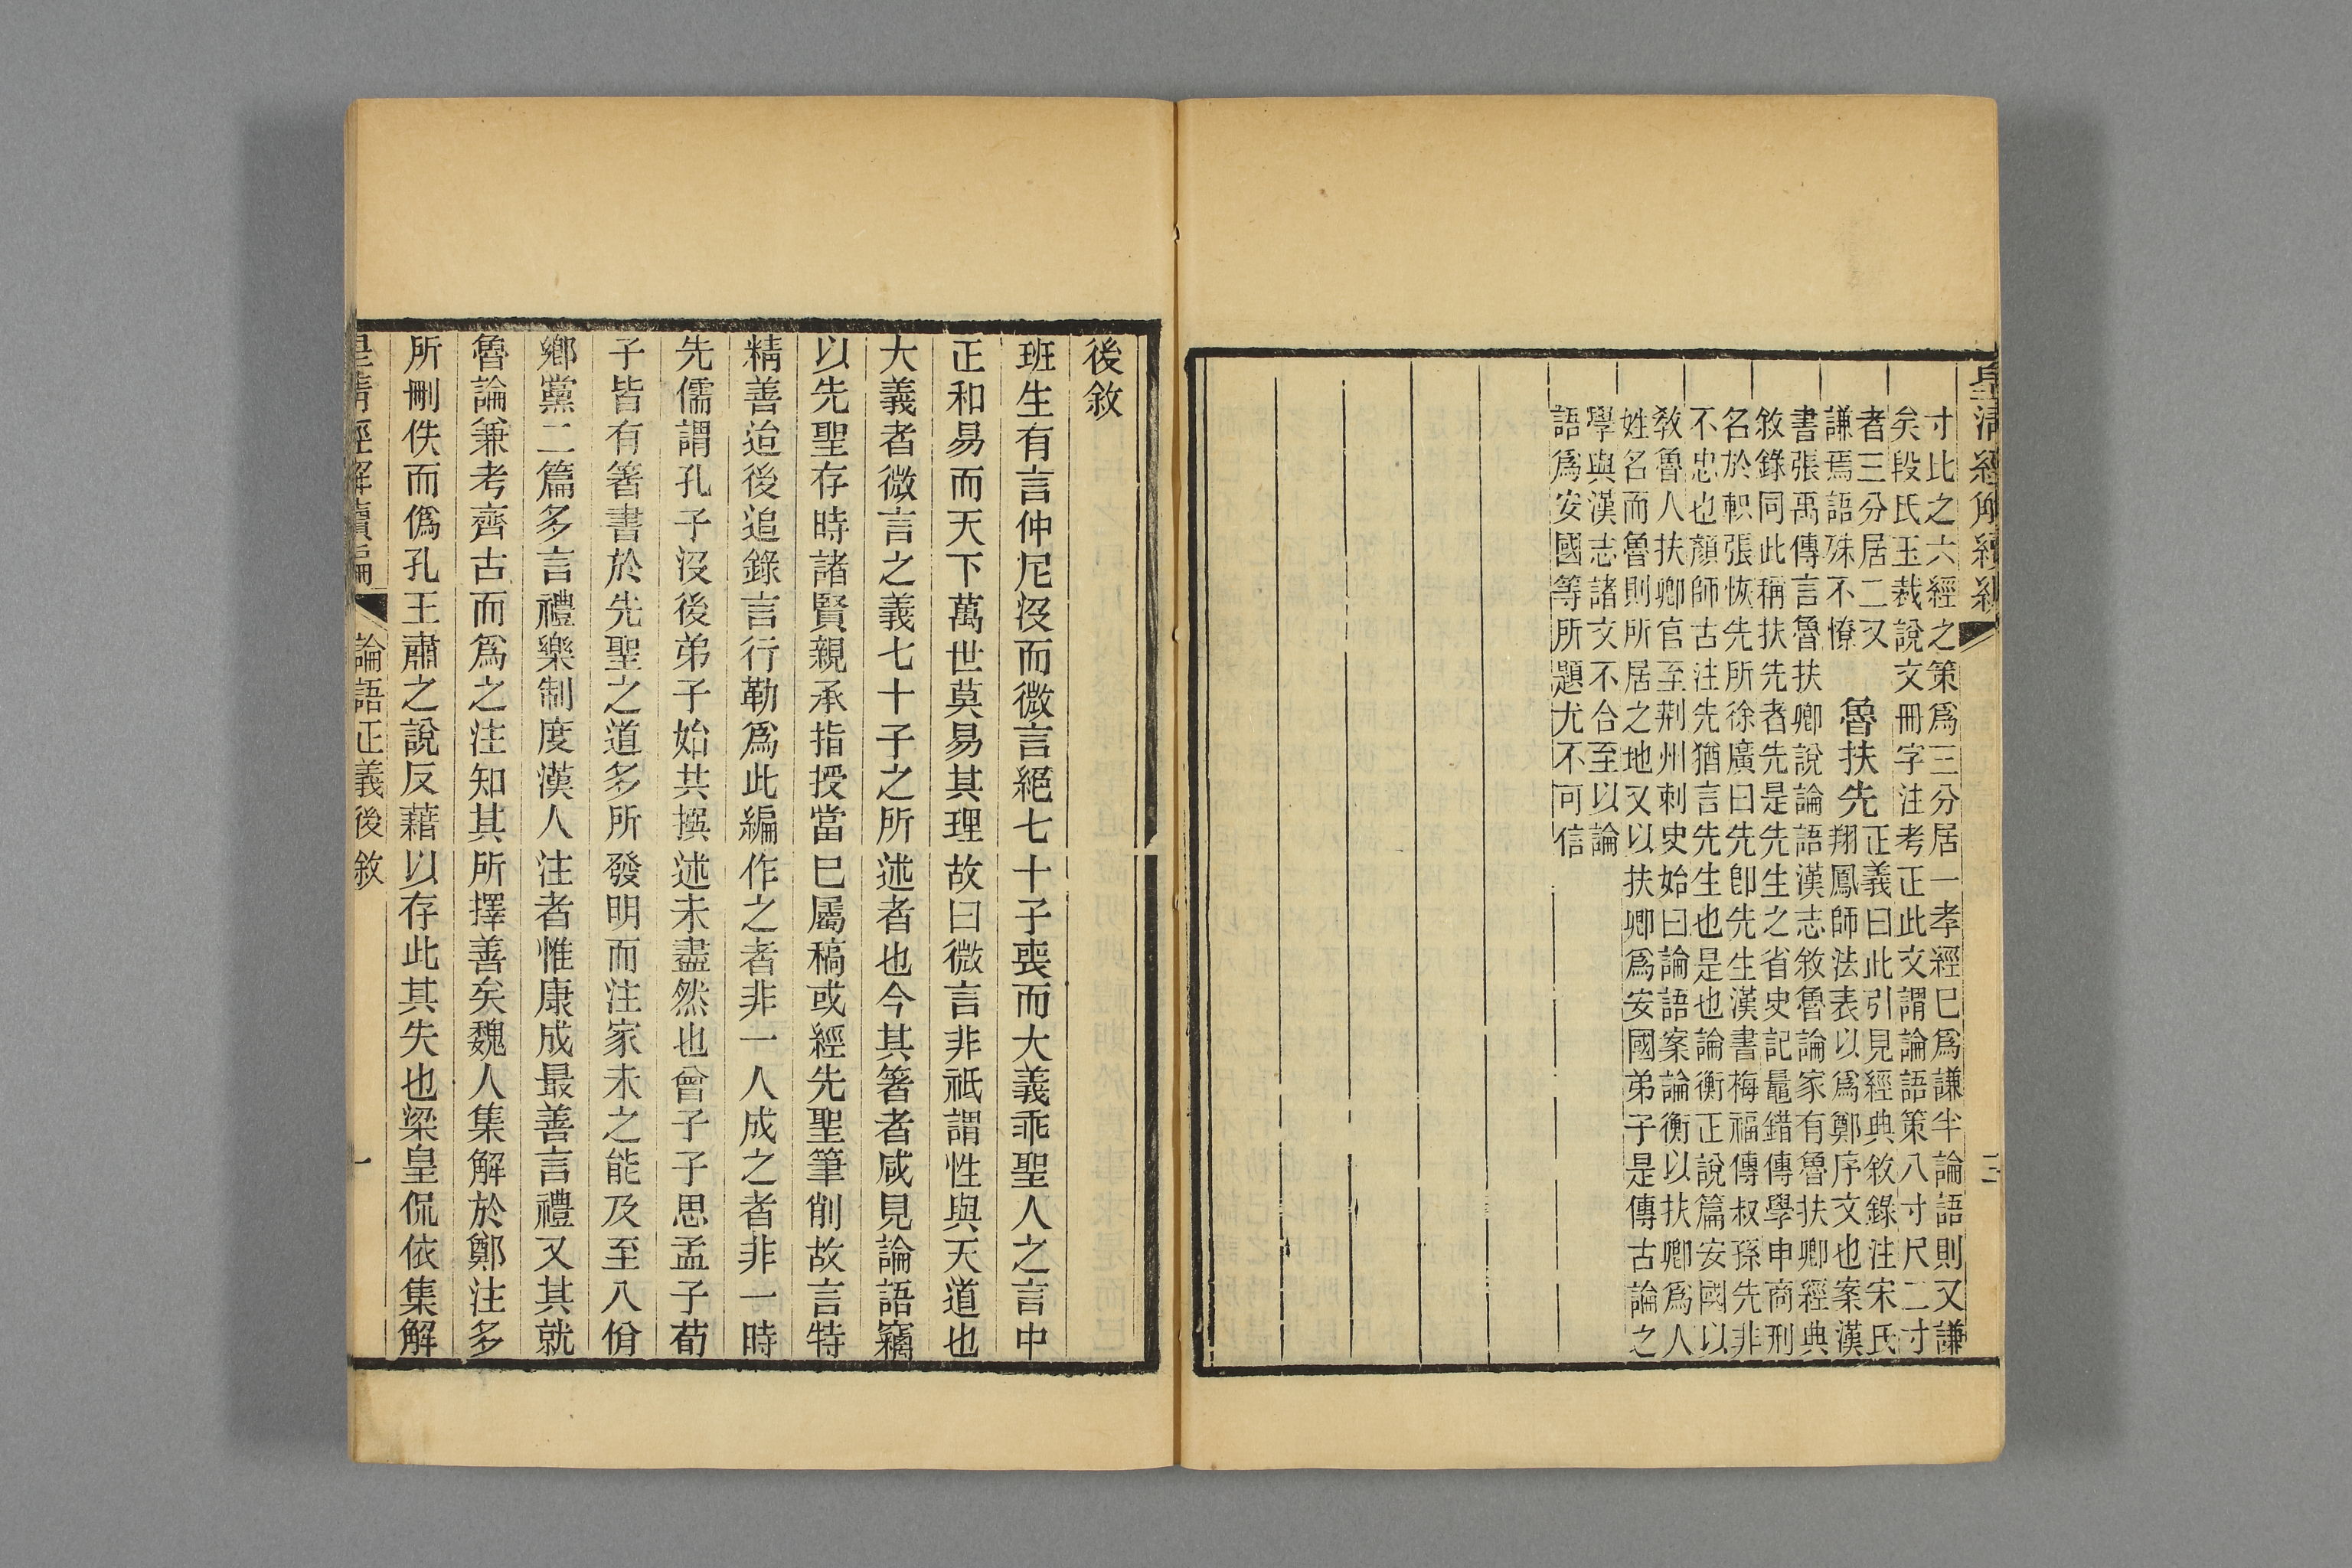 皇清經解續編
寸此之六經之策爲三分居一孝經巳爲謙半論語則又謙
矣段氏玉裁說文冊字注考正此文謂論語策八寸尺二寸
者三分居二又
謙焉語殊不憭
魯扶先
正義曰此引見經典敘錄注宋氏
翔鳳師法表以爲鄭序文也案漢
書張禹傳言魯扶卿說論語漢志敘魯論家有魯扶卿經典
敘錄同此稱扶先者先是先生之省史記鼂錯傳學申商刑
名於軹張恢先所徐廣曰先卽先生漢書梅福傳叔孫先非
不忠也顏師古注先猶言先生也是也論衡正說篇安國以
教魯人扶卿官至荆州刺史始曰論語案論衡以扶卿爲人
姓名而魯則所居之地又以扶卿爲安國弟子是傳古論之
學與漢志諸文不合至以論
語爲安國等所題尤不可信
後敘
班生有言仲尼沒而微言絕七十子喪而大義乖聖人之言中
正和易而天下萬世莫易其理故曰微言非祇謂性與天道也
大義者微言之義七十子之所述者也今其箸者咸見論語竊
以先聖存時諸賢親承指授當巳屬稿或經先聖筆削故言特
精善迨後追錄言行勒爲此編作之者非一人成之者非一時
先儒謂孔子沒後弟子始共撰述未盡然也曾子子思孟子荀
子皆有箸書於先聖之道多所發明而注家未之能及至八佾
鄉黨二篇多言禮樂制度漢人注者惟康成最善言禮又其就
魯論兼考齊古而爲之注知其所擇善矣魏人集解於鄭注多
所刪佚而僞孔王肅之說反藉以存此其失也梁皇侃依集解
皇清經解續編 論語正義後敘 一